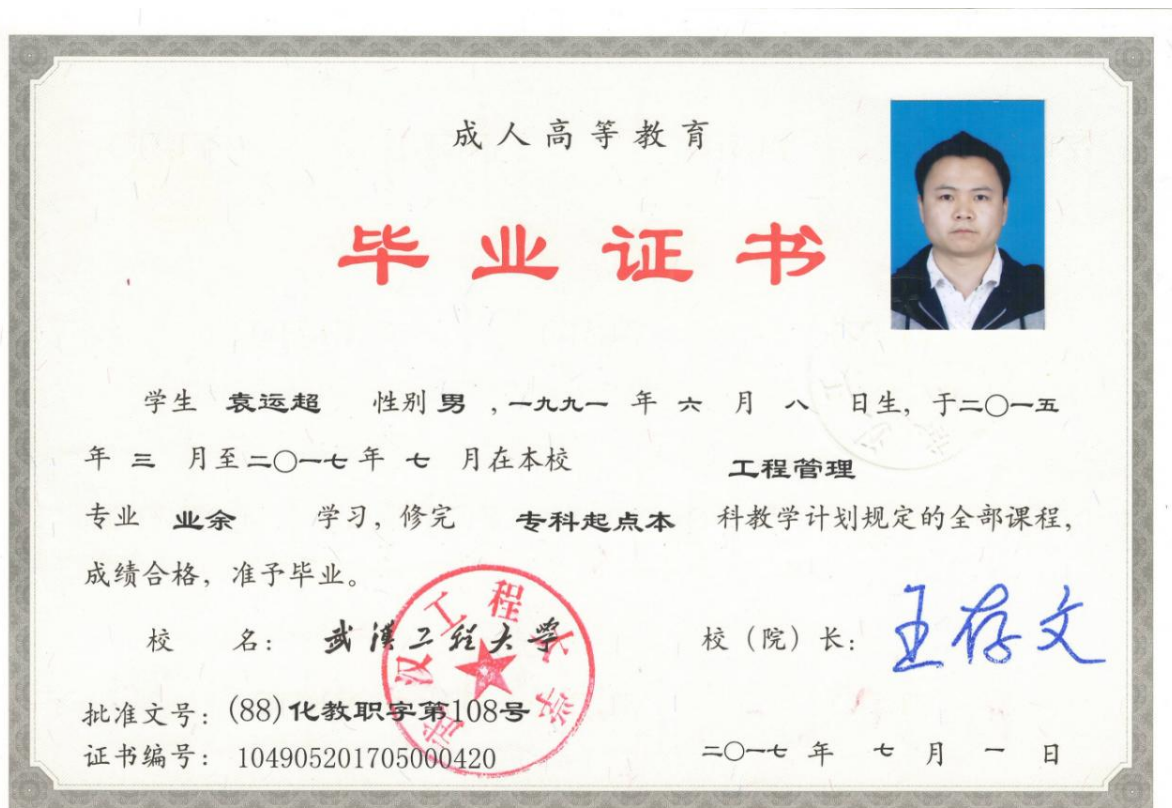 成人高等教育
毕业证书
学生 袁运超 性别 男 ，一九九一 年 六 月 八 日生，于二〇一五
年 三 月至二〇一七年 七 月在本校 工程管理
专业 业余 学习，修完 专科起点本 科教学计划规定的全部课程，
成绩合格，准予毕业。
校 名： 武汉工程大学 校（院）长： 王存文
武汉工程大学
批准文号：(88)化教职字第108号
证书编号：104905201705000420 二〇一七 年 七 月 一 日